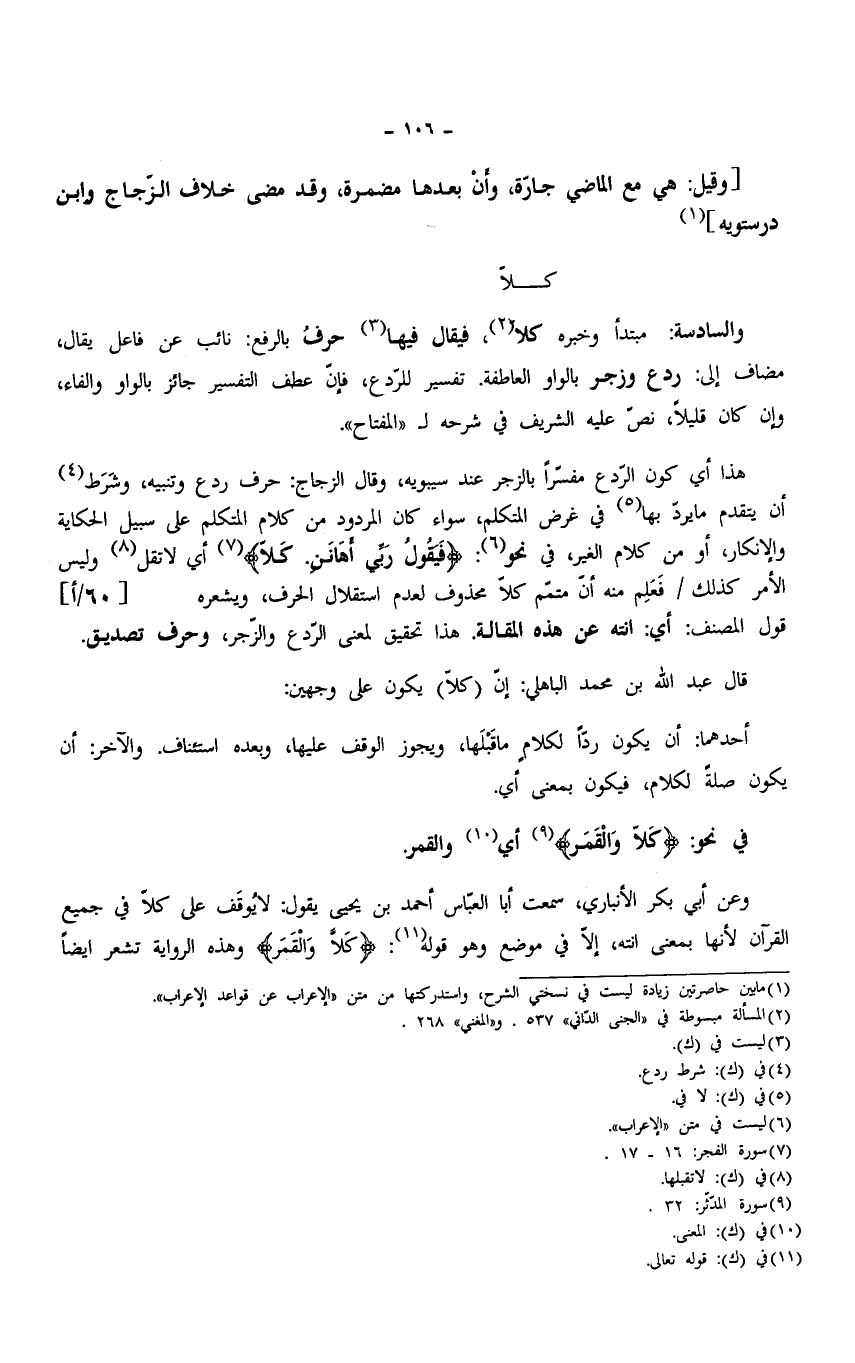 ـ ١٠٦ ـ
[وقيل: هي مع الماضي جارّة، وأَنْ بعدها مضمرة، وقد مضى خلاف الزّجاج وابن
درستويه](١)
كـــلاّ
والسادسة: مبتدأ وخبره كلاّ(٢)، فيقال فيها(٣) حرفُ بالرفع: نائب عن فاعل يقال،
مضاف إلى: ردع وزجر بالواو العاطفة. تفسير للرّدع، فإنّ عطف التفسير جائز بالواو والفاء،
وإن كان قليلاً، نصّ عليه الشريف في شرحه لـ «المفتاح».
هذا أي كون الرّدع مفسّراً بالزجر عند سيبويه، وقال الزجاج: حرف ردع وتنبيه، وشَرَط(٤)
أن يتقدم مايردّ بها(٥) في غرض المتكلم، سواء كان المردود من كلام المتكلم على سبيل الحكاية
والإنكار، أو من كلام الغير، في نحو(٦): ﴿فَيَقُولُ رَبِّي أَهَانَنِ. كَلاّ﴾(٧) أي لاتقل(٨) وليس
الأمر كذلك / فَعَلِم منه أنّ متمّم كلاّ محذوف لعدم استقلال الحرف، ويشعره [٦٠/أ]
قول المصنف: أي: انته عن هذه المقالة. هذا تحقيق لمعنى الرّدع والزّجر، وحرف تصديق.
قال عبد الله بن محمد الباهلي: إنّ (كلاّ) يكون على وجهين:
أحدهما: أن يكون ردّاً لكلامٍ ماقَبْلَها، ويجوز الوقف عليها، وبعده استئناف. والآخر: أن
يكون صلةً لكلام، فيكون بمعنى أي.
في نحو: ﴿كَلاّ وَالْقَمَر﴾(٩) أي(١٠) والقمر.
وعن أبي بكر الأنباري، سمعت أبا العبّاس أحمد بن يحيى يقول: لايُوقَف على كلاّ في جميع
القرآن لأنها بمعنى انته، إلاّ في موضع وهو قوله(١١): ﴿كَلاَّ وَالْقَمَر﴾ وهذه الرواية تشعر ايضاً
(١) مابين حاصرتين زيادة ليست في نسختي الشرح، واستدركتها من متن «الإعراب عن قواعد الإعراب».
(٢) المسألة مبسوطة في «الجنى الدّاني» ٥٣٧ . و«المغني» ٢٦٨ .
(٣) ليست في (ك).
(٤) في (ك): شرط ردع.
(٥) في (ك): لا في.
(٦) ليست في متن «الإعراب».
(٧) سورة الفجر: ١٦ ـ ١٧ .
(٨) في (ك): لاتقبلها.
(٩) سورة المدّثّر: ٣٢ .
(١٠) في (ك): المعنى.
(١١) في (ك): قوله تعالى.